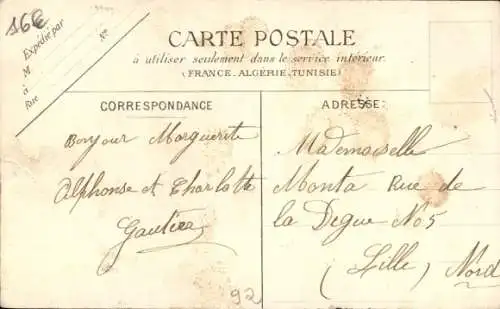 16€
Expédié par
M
à
Rue
No
CARTE POSTALE
à utiliser seulement dans le service intérieur
(FRANCE_ALGERIE_TUNISIE)
CORRESPONDANCE
ADRESSE:
Bonjour Marguerite
Alphonse et Charlotte
Gautier
Mademoiselle
Monta Rue de
la Digue No 5
(Lille) Nord
92